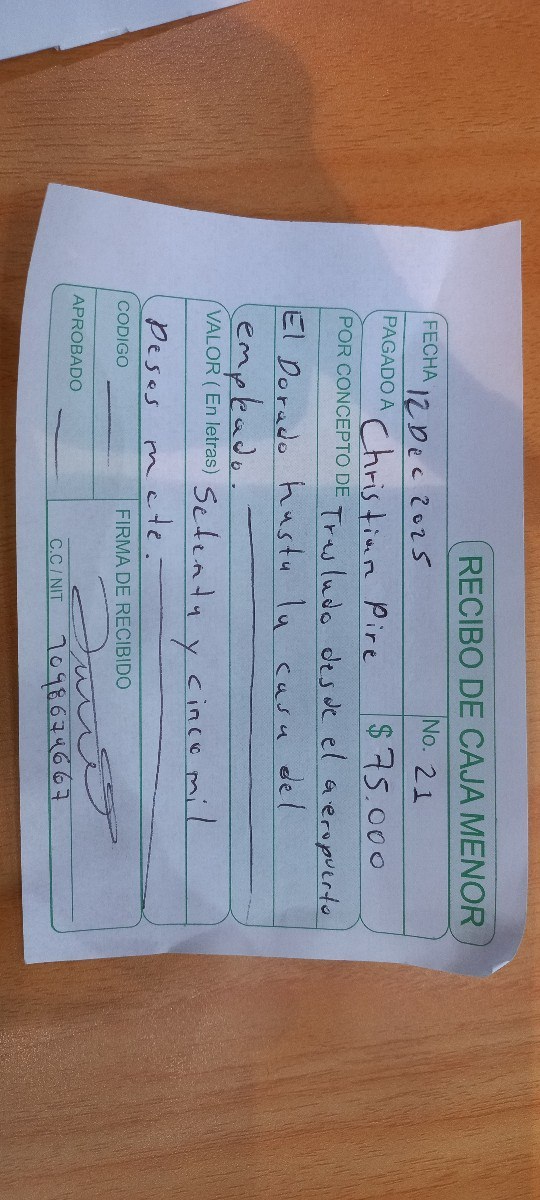 RECIBO DE CAJA MENOR
FECHA 12 Dec 2025 No. 21
PAGADO A Christian Pire $ 75.000
POR CONCEPTO DE Traslado desde el aeropuerto
El Dorado hasta la casa del
empleado.
VALOR ( En letras) Setenta y cinco mil
pesos mcte.
CODIGO
FIRMA DE RECIBIDO
APROBADO
C.C / NIT 1098674667